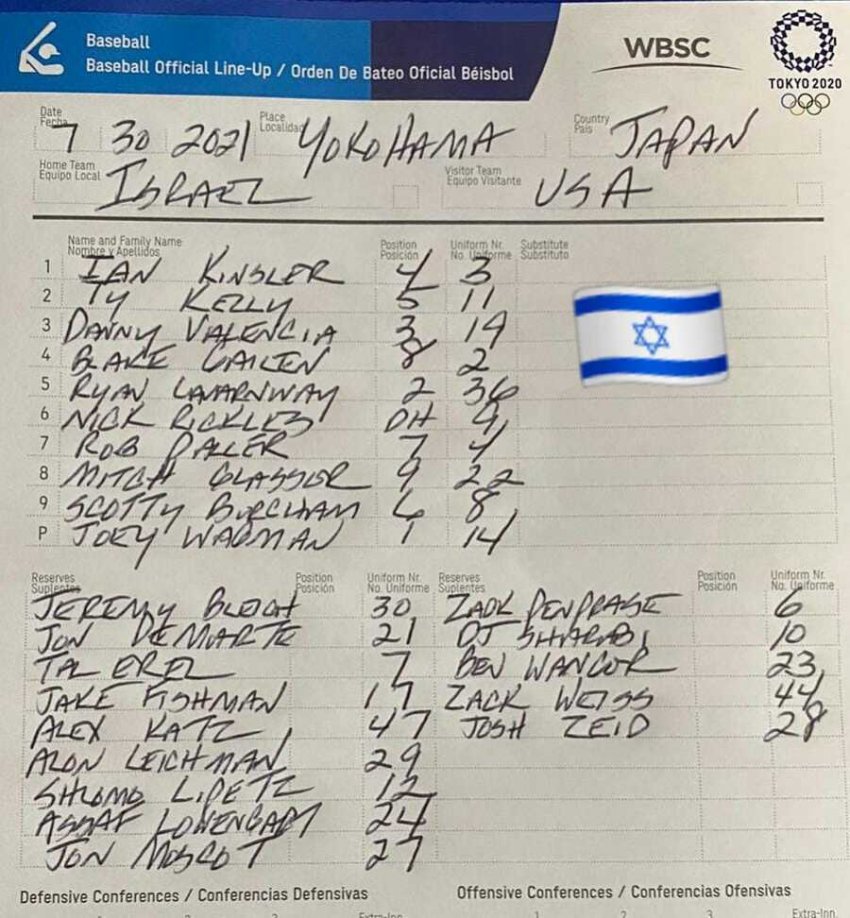 Baseball
Baseball Official Line-Up / Orden De Bateo Oficial Béisbol
WBSC
TOKYO 2020
Date
Fecha
7 30 2021
Place
Localidad
YOKOHAMA
Country
País
JAPAN
Home Team
Equipo Local
ISRAEL
Visitor Team
Equipo Visitante
USA
Name and Family Name
Nombre y Apellidos
Position
Posición
Uniform Nr.
No. Uniforme
Substitute
Substituto
1 IAN KINSLER 4 3
2 TY KELLY 5 11
3 DANNY VALENCIA 3 19
4 BLAKE GAILEN 8 2
5 RYAN LAVARNWAY 2 36
6 NICK RICKLES DH 9
7 ROB PALLER 7 4
8 MITCH GLASSER 9 22
9 SCOTTY BURCHAM 6 8
P JOEY WAGMAN 1 14
Reserves
Suplentes
Position
Posición
Uniform Nr.
No. Uniforme
Reserves
Suplentes
Position
Posición
Uniform Nr.
No. Uniforme
JEREMY BLEICH 30 ZACK PENPRASE 6
JON DEMARTE 21 DJ SHARABI 10
TAL EREL 7 BEN WANGER 23
JAKE FISHMAN 17 ZACK WEISS 44
ALEX KATZ 47 JOSH ZEID 28
ALON LEICHMAN 29
SHLOMO LIPETZ 12
ASSAF LOWENGART 24
JON MOSCOT 27
Defensive Conferences / Conferencias Defensivas
Offensive Conferences / Conferencias Ofensivas
1 2 3 Extra-Inn.